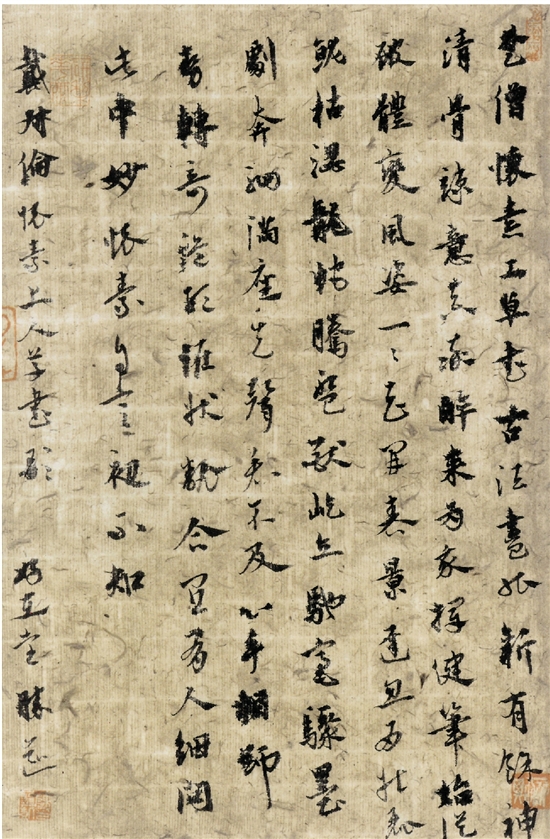 楚僧懷素工草書古法盡能新有餘神
清骨竦意真率醉來為我揮健筆始從
破體變風姿一一花開春景遲忽為壯麗
就枯澀龍蛇騰盤獸屹立馳毫驟墨
劇奔駟滿座失聲看不及心手相師
勢轉奇詭形怪狀翻合宜有人細問
此中妙懷素自言初不知
戴叔倫懷素上人草書歌